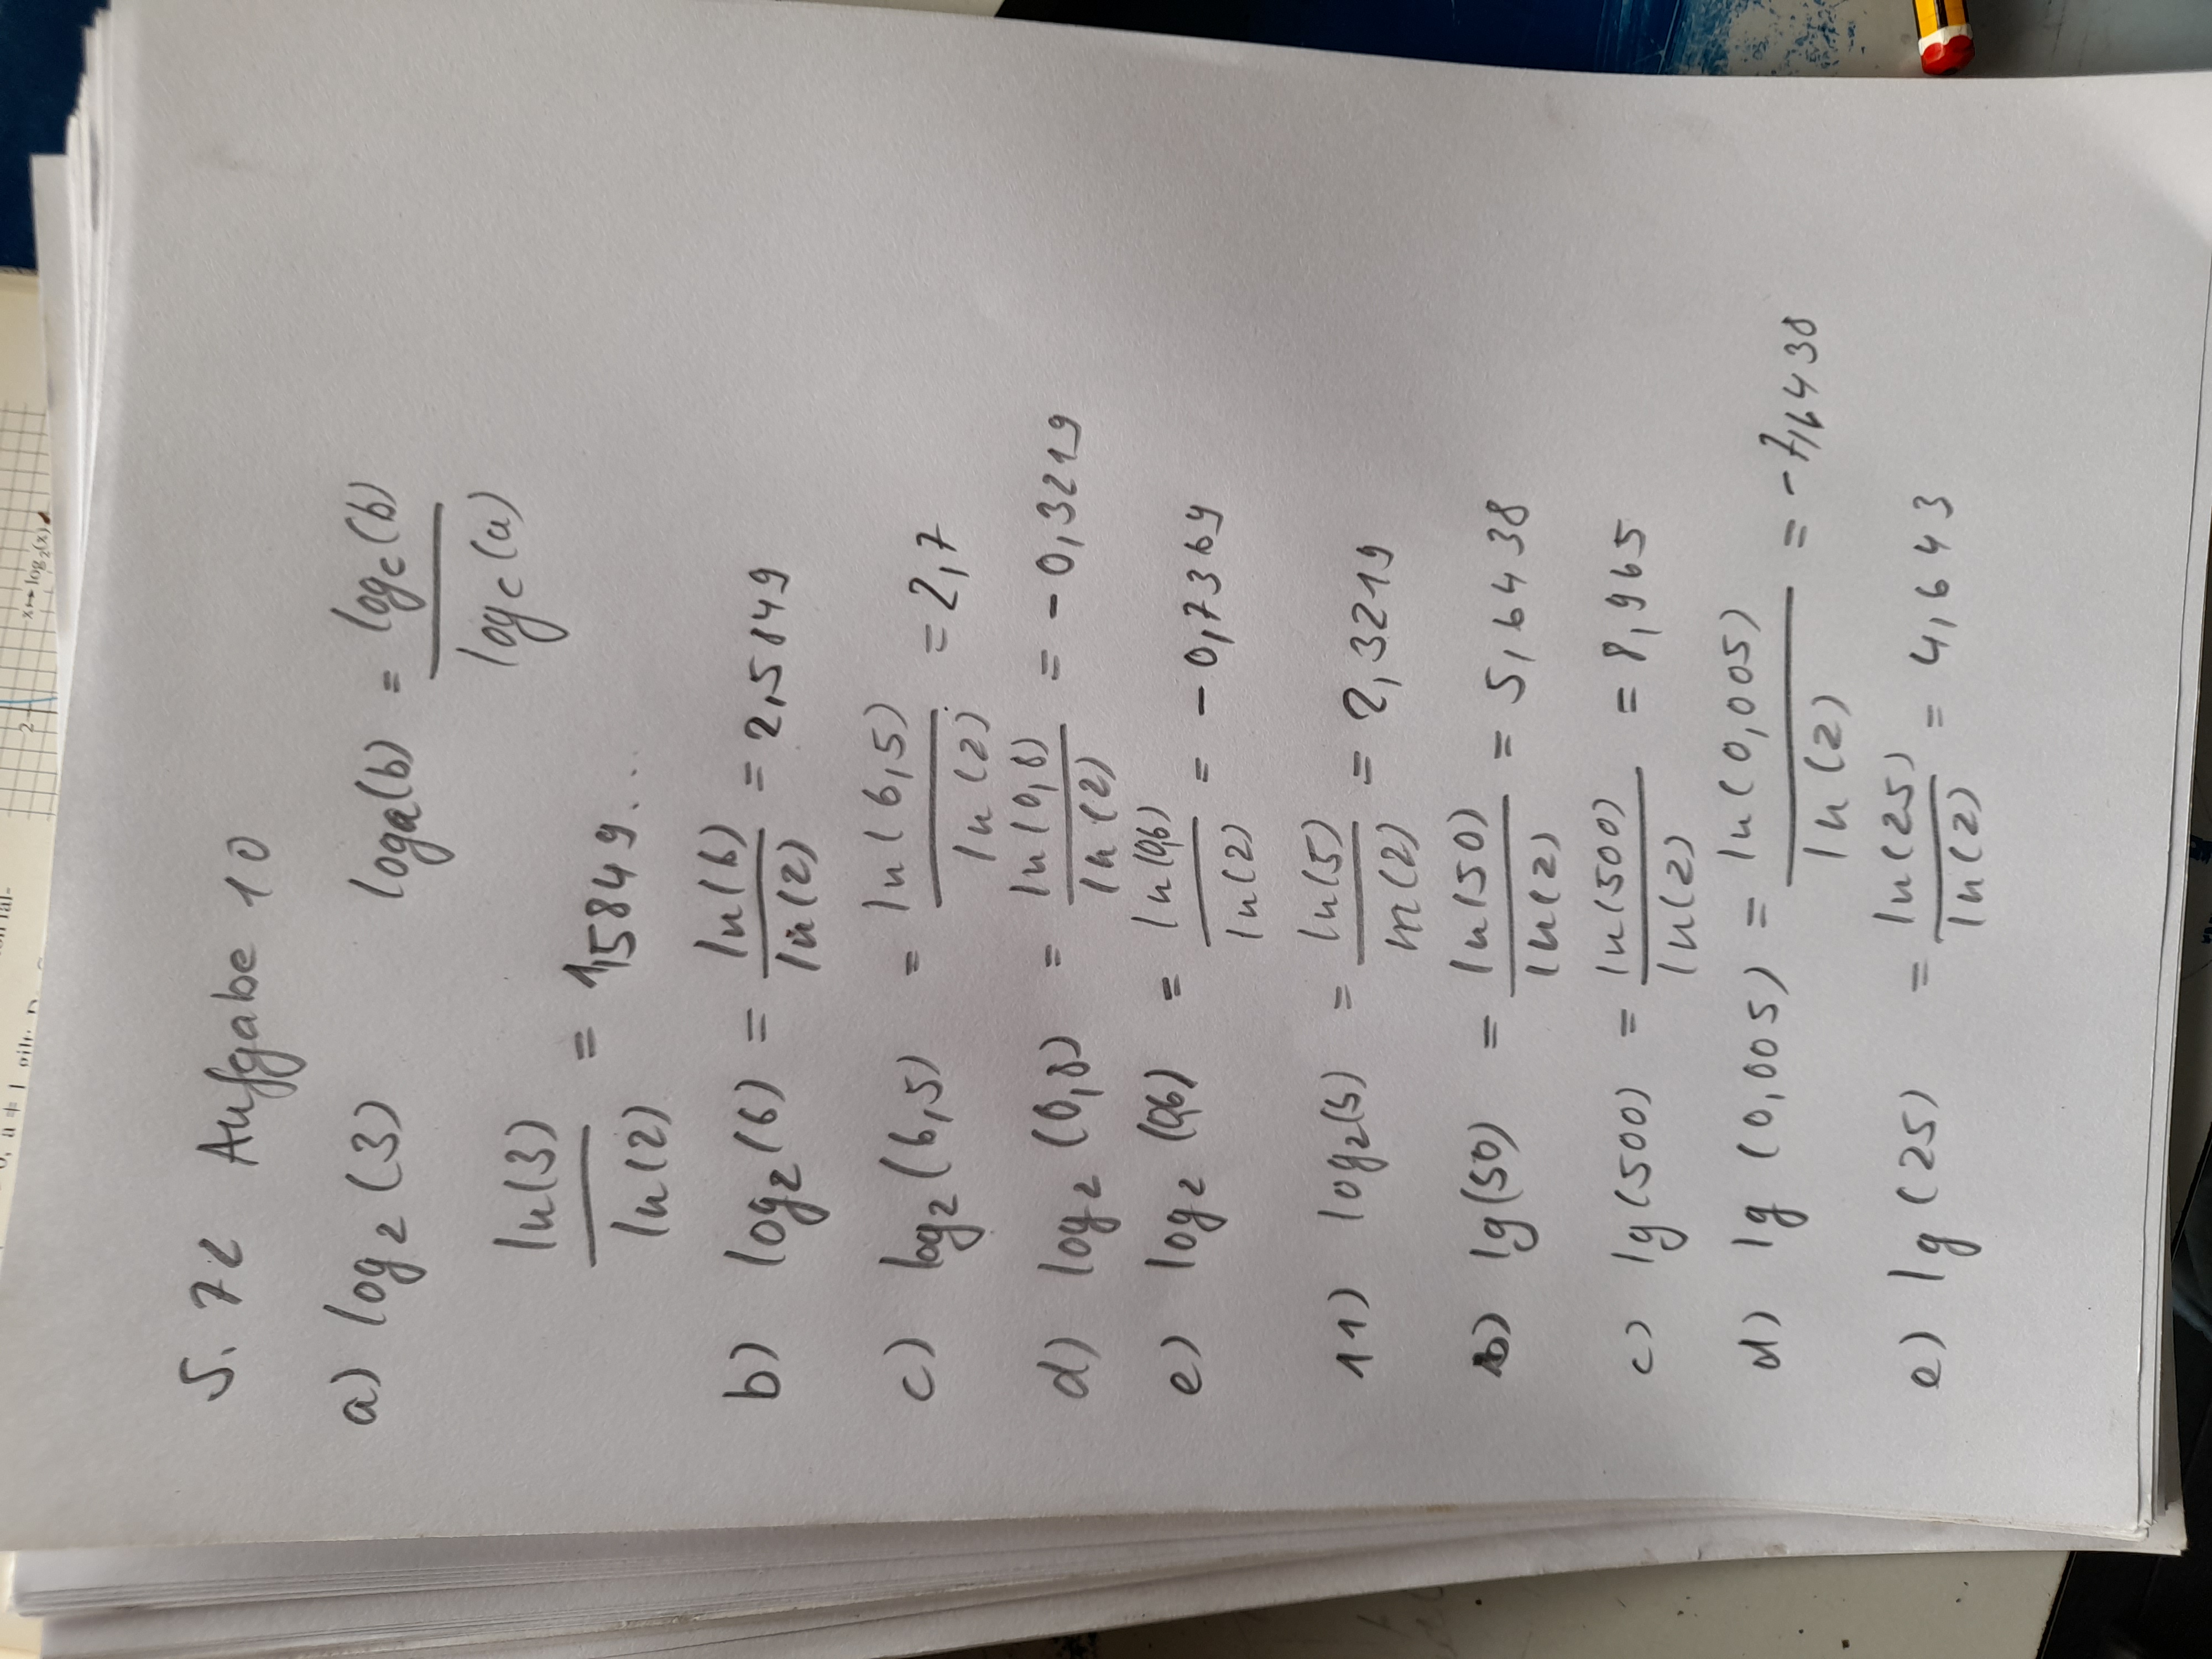 S. 72 Aufgabe 10
a) log₂(3) logₐ(b) = log_c(b) / log_c(a)
ln(3) / ln(2) = 1,5849...
b) log₂(6) = ln(6) / ln(2) = 2,5849
c) log₂(6,5) = ln(6,5) / ln(2) = 2,7
d) log₂(0,8) = ln(0,8) / ln(2) = -0,3219
e) log₂(0,6) = ln(0,6) / ln(2) = -0,7369
11) log₂(5) = ln(5) / ln(2) = 2,3219
b) lg(50) = ln(50) / ln(2) = 5,6438
c) lg(500) = ln(500) / ln(2) = 8,965
d) lg(0,005) = ln(0,005) / ln(2) = -7,6438
e) lg(25) = ln(25) / ln(2) = 4,643
x↦log₂(x)
2